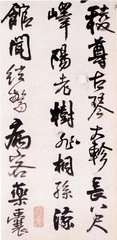 稜尊古琴大軫長八尺
嶧陽老樹非桐孫流
館聞絃驚病客藥囊